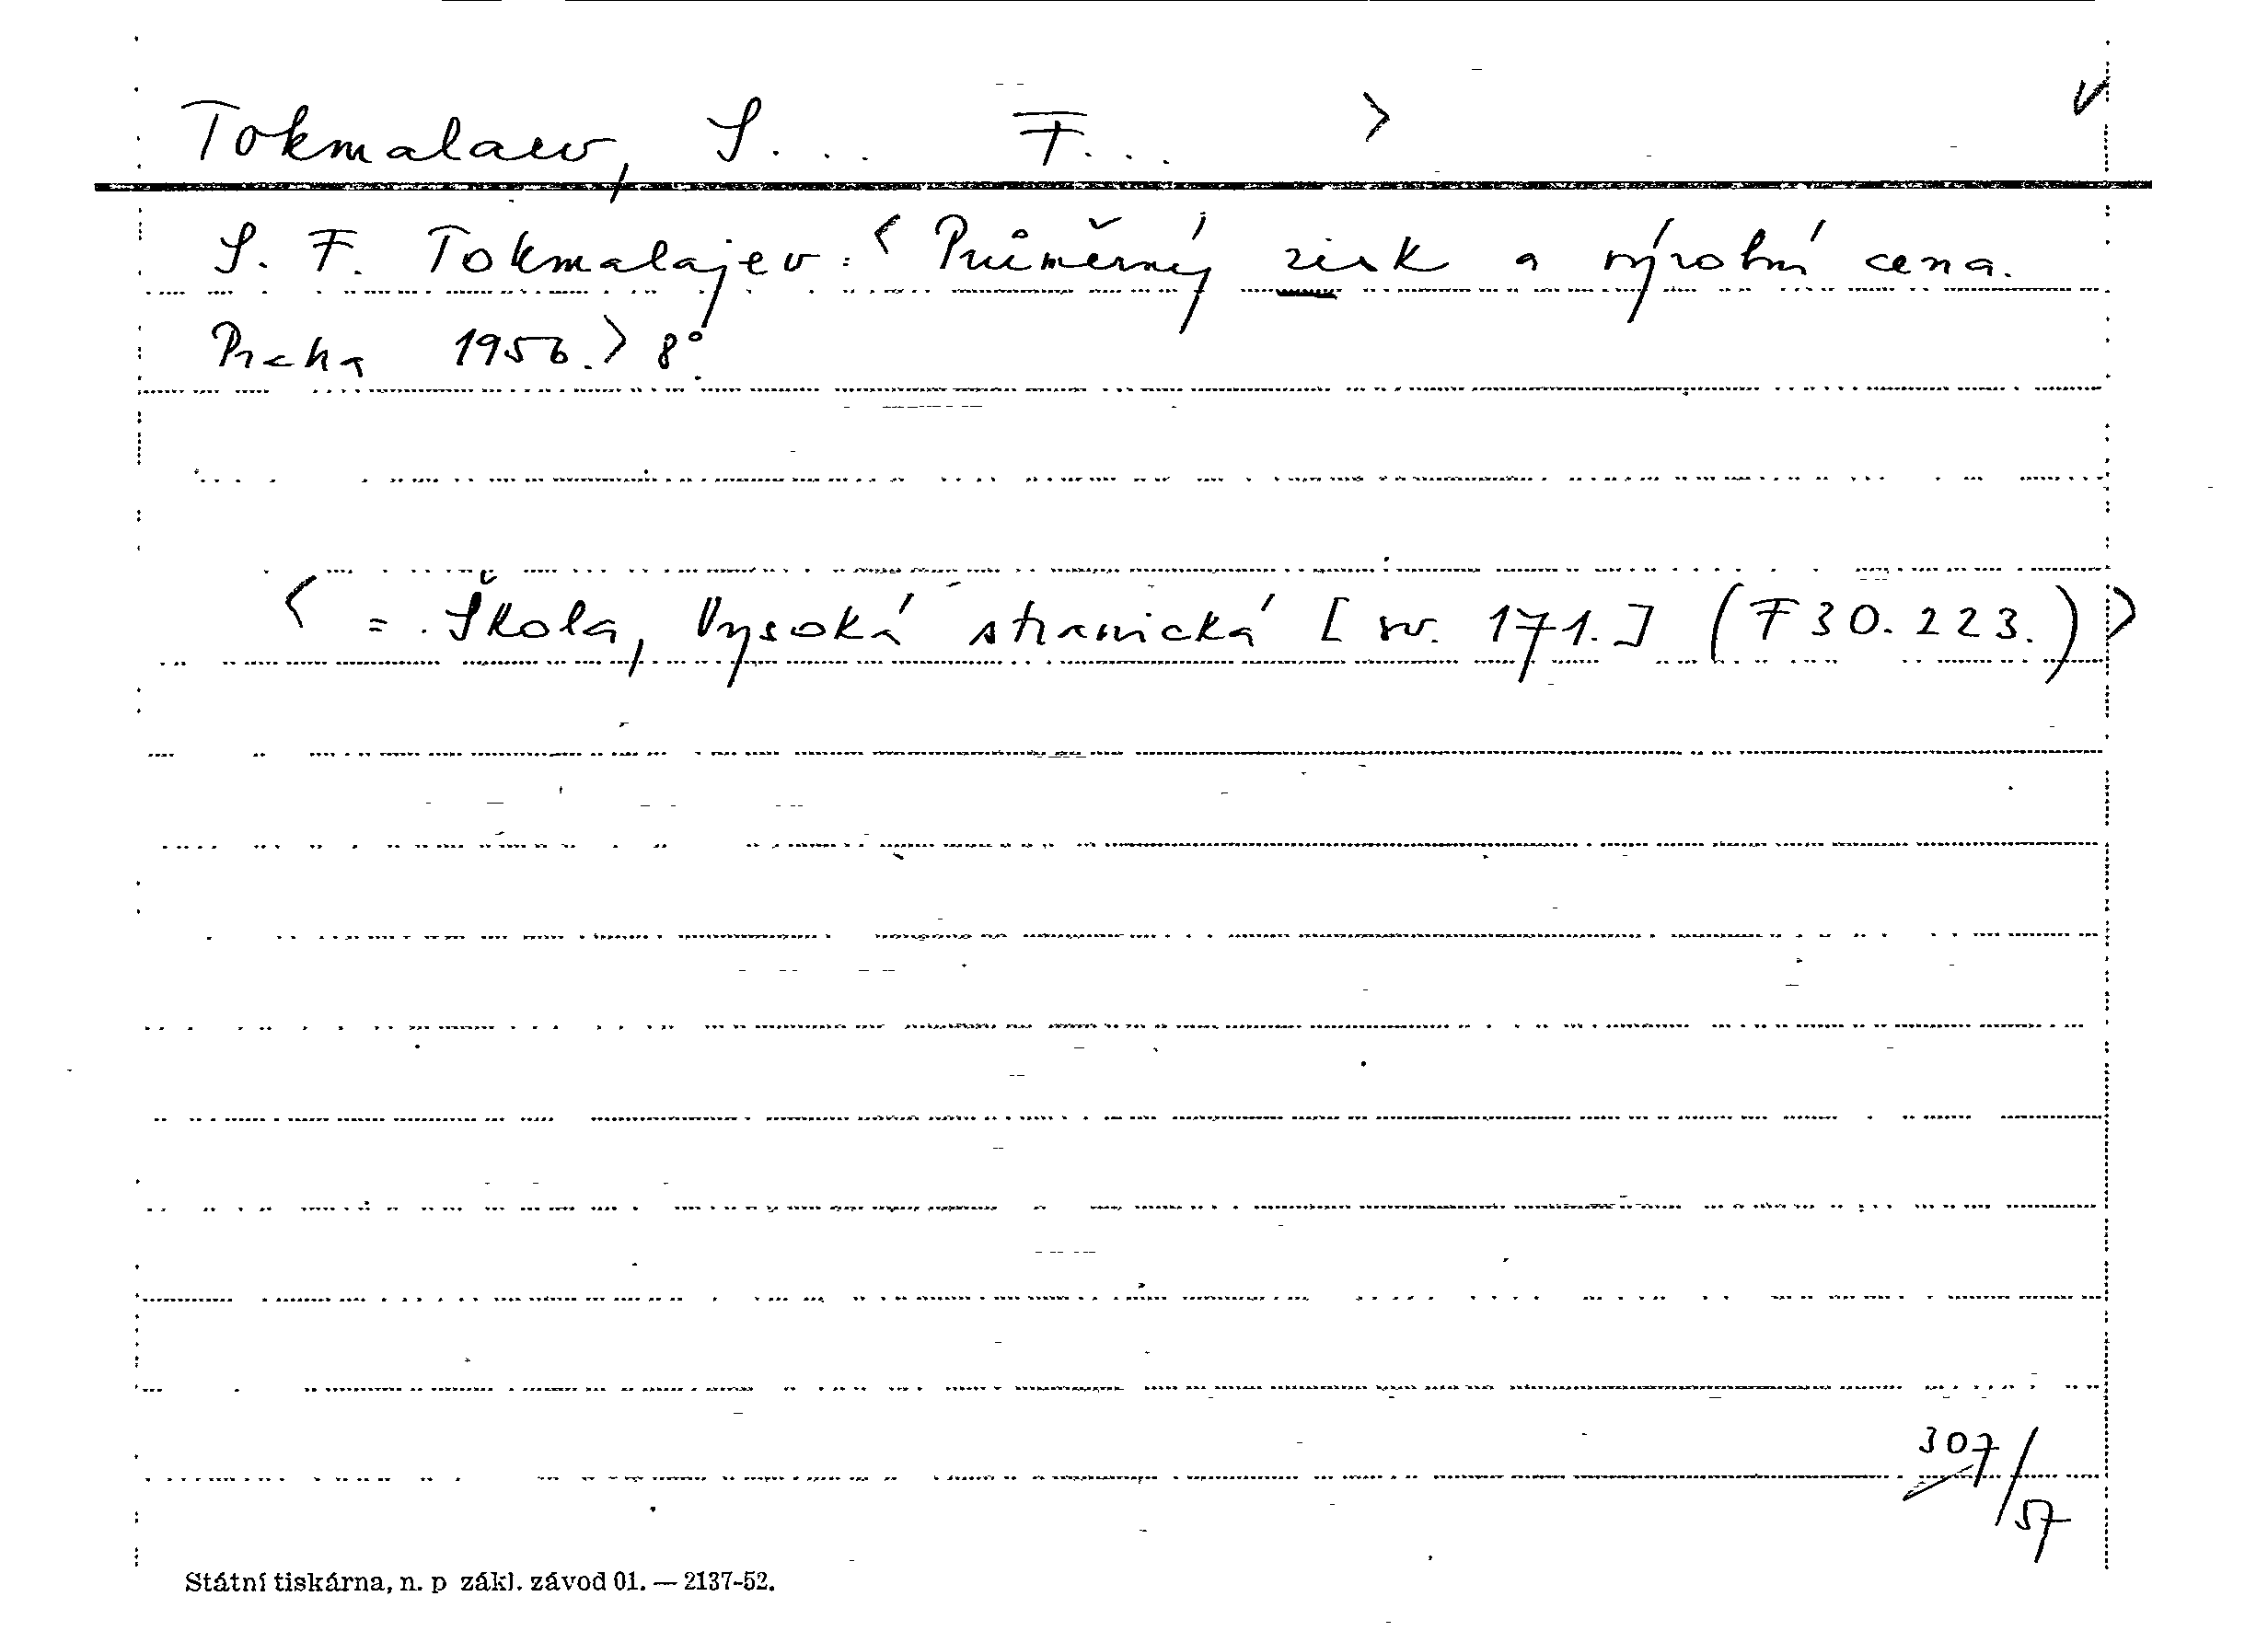 Tokmalaew, S... F... > v
S. F. Tokmalajev: < Průměrný zisk a výrobní cena.
Praha 1956.> 8°.
< = Škola, Vysoká stranická [sv. 171.] (F 30.223.) >
307/57
Státní tiskárna, n. p zákl. závod 01. — 2137-52.